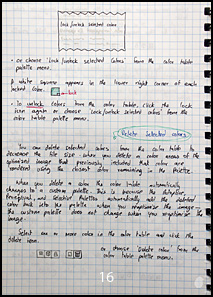 Lock/unlock selected colors
• Or choose Lock/unlock selected Colors from the color table
palette menu.
A white square appears in the lower right corner of each
locked color.
• To unlock colors from the color table, click the lock
icon again or choose Lock/unlock selected Colors from the
color table palette menu.
Delete selected colors
You can delete selected colors from the color table to
decrease the file size. When you delete a color, areas of the
optimized image that previously included that color are
rendered using the closest color remaining in the palette.
When you delete a color the color table automatically
changes to a custom palette. This is because the Adaptive,
Perceptual, and Selective palettes automatically add the deleted
color back into the palette when you reoptimize the image –
the custom palette does not change when you reoptimize the
image.
Select one or more colors in the color table and click the
delete icon.
Or choose Delete color from the
color table palette menu.
16